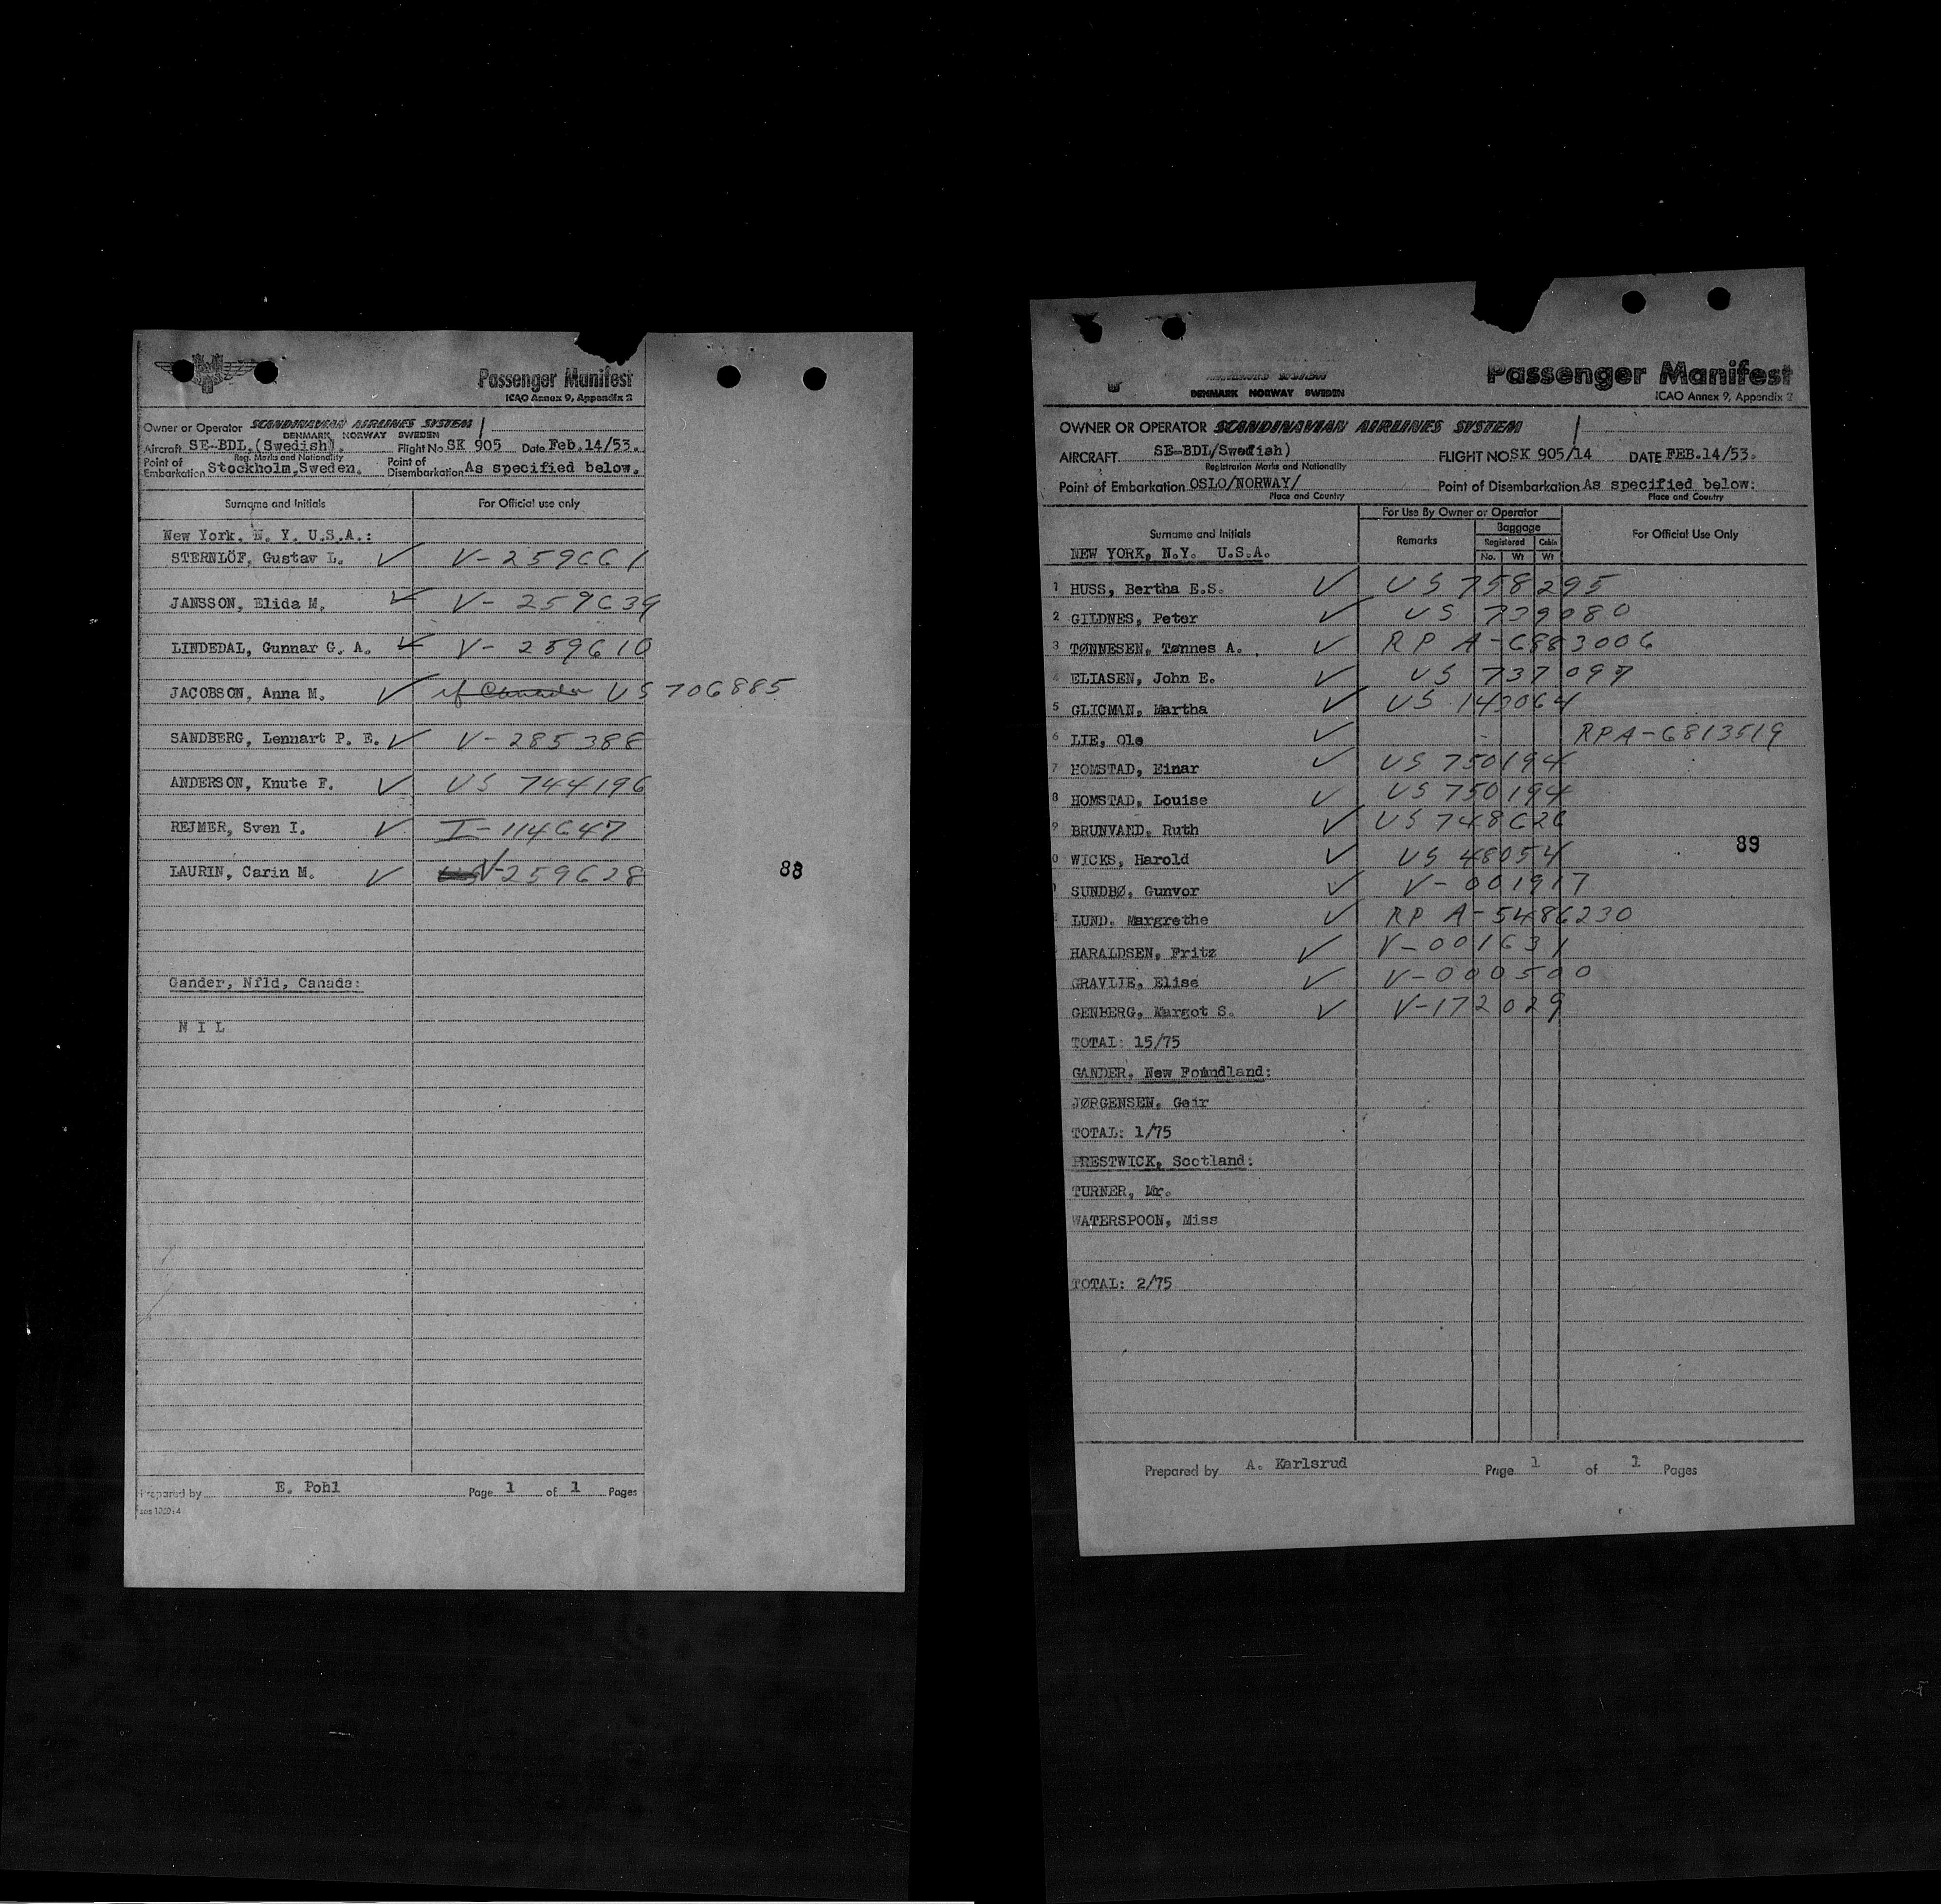 Passenger Manifest
ICAO Annex 9, Appendix 2
Owner or Operator SCANDINAVIAN AIRLINES SYSTEM
DENMARK NORWAY SWEDEN
Aircraft SE-BDL (Swedish). Flight No SK 905 Date Feb.14/53.
Reg. Marks and Nationality
Point of Embarkation Stockholm,Sweden. Point of Disembarkation As specified below.
Surname and Initials For Official use only
New York. N. Y. U.S.A.:
STERNLÖF, Gustav L. ✓ V-259661
JANSSON, Elida M. ✓ V-259639
LINDEDAL, Gunnar G. A. ✓ V-259610
JACOBSON, Anna M. ✓ US 706885
SANDBERG, Lennart P. E. ✓ V-285388
ANDERSON, Knute F. ✓ US 744196
REJMER, Sven I. ✓ I-114647
LAURIN, Carin M. ✓ V-259628
88
Gander, Nfld, Canada:
N I L
Prepared by E. Pohl Page 1 of 1 Pages
Passenger Manifest
DENMARK NORWAY SWEDEN
ICAO Annex 9, Appendix 2
OWNER OR OPERATOR SCANDINAVIAN AIRLINES SYSTEM
AIRCRAFT. SE-BDL/Swedish) FLIGHT NO SK 905/14 DATE FEB.14/53.
Registration Marks and Nationality
Point of Embarkation OSLO/NORWAY/ Point of Disembarkation As specified below:
Place and Country Place and Country
For Use By Owner or Operator
Surname and Initials Remarks Baggage For Official Use Only
Registered Cabin
NEW YORK, N.Y. U.S.A. No. Wt Wt
1 HUSS, Bertha E.S. ✓ US 758295
2 GILDNES, Peter ✓ US 739080
3 TØNNESEN, Tønnes A. ✓ RP A-6883006
4 ELIASEN, John E. ✓ US 737097
5 GLICMAN, Martha ✓ US 143064
6 LIE, Ole ✓ RPA-6813519
7 HOMSTAD, Einar ✓ US 750194
8 HOMSTAD, Louise ✓ US 750194
9 BRUNVAND, Ruth ✓ US 748626
0 WICKS, Harold ✓ US 48054
89
SUNDBØ, Gunvor ✓ V-001917
LUND, Margrethe ✓ RP A-5486230
HARALDSEN, Fritz ✓ V-001631
GRAVLIE, Elise ✓ V-000500
GENBERG, Margot S. ✓ V-172029
TOTAL: 15/75
GANDER, New Foundland:
JØRGENSEN, Geir
TOTAL: 1/75
PRESTWICK, Scotland:
TURNER, Mr.
WATERSPOON, Miss
TOTAL: 2/75
Prepared by A. Karlsrud Page 1 of 1 Pages